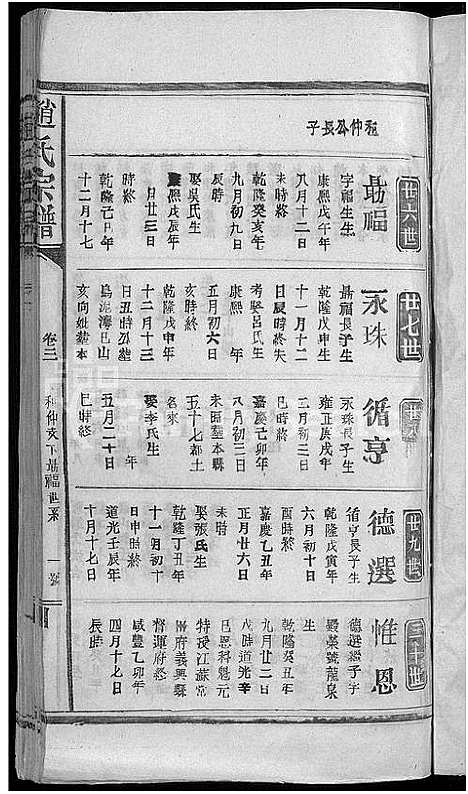 程仲公長子
廿六世
勗福
字福生生
康熙戊午年
八月十二日
未時終
乾隆癸亥年
九月初九日
娶吳氏生
康熙戊辰年
月廿三日
時終
乾隆己日年
十二月十七
廿七世
永珠
勗福長子生
乾隆戊申生
十一月十二
日辰時終失
考娶呂氏生
康熙 年
五月初六日
時終
乾隆戊申年
十二月十三
日丑時終𦵏
烏泥灣巴山
亥向妣𦵏本
廿八世
循亨
永珠長子生
雍正庚戌年
二月初三日
巳時終
嘉慶己卯年
八月初三日
未時𦵏本縣
五十七都
名來
娶李氏生
年
五月二十日
巳時終
廿九世
德選
循亨長子生
乾隆戊寅年
六月初十日
生
嘉慶乙丑年
正月廿六日
未時
娶張氏生
乾隆丁丑年
十一月初十
日申時終
道光壬辰年
十月十七日
三十世
惟恩
德選繼子字
爵榮號龍泉
生
乾隆癸丑年
九月廿二日
戌時道光辛
巳恩科魁元
特授江蘇常
州府義興縣
督運府終
咸豐乙卯年
四月十七日
辰時
趙氏宗譜
卷三
和仲支下勗福世系
一號